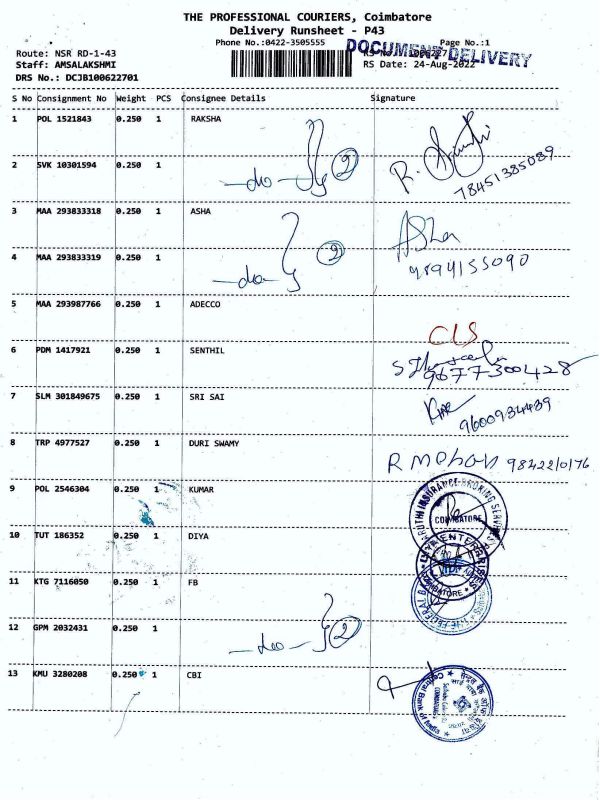 THE PROFESSIONAL COURIERS, Coimbatore
Delivery Runsheet - P43
Phone No.:0422-3505555
Page No.:1
DOCUMENT DELIVERY
Route: NSR RD-1-43
Staff: AMSALAKSHMI
RS Date: 24-Aug-2022
DRS No.: DCJB100622701
S No Consignment No Weight PCS Consignee Details Signature
1 POL 1521843 0.250 1 RAKSHA
2 SVK 10301594 0.250 1 -do- 2 R.
78451385089
3 MAA 293833318 0.250 1 ASHA Asha
4 MAA 293833319 0.250 1 -do- 2 9894155090
5 MAA 293987766 0.250 1 ADECCO
CLS
6 PDM 1417921 0.250 1 SENTHIL
9677300428
7 SLM 301849675 0.250 1 SRI SAI
9600934489
8 TRP 4977527 0.250 1 DURI SWAMY
R Mohan 9842210176
9 POL 2546304 0.250 1 KUMAR
INSURANCE BROKING
COIMBATORE
10 TUT 186352 0.250 1 DIYA
ENTERPRISES
11 KTG 7116050 0.250 1 FB
THE FEDERAL
12 GPM 2032431 0.250 1 -do- 2
13 KMU 3280208 0.250 1 CBI
Central Bank of India